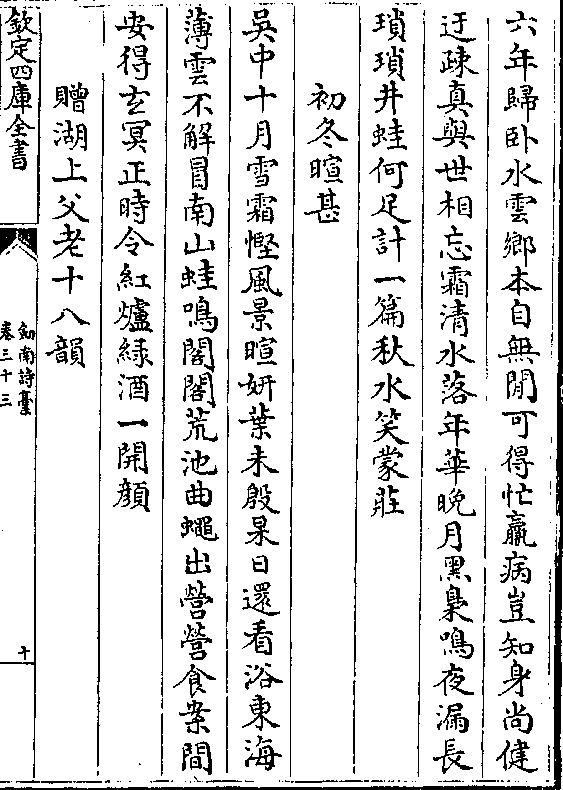 六年歸卧水雲鄉本自無閒可得忙羸病豈知身尚健
迂疎真與世相忘霜清水落年華晚月黑梟鳴夜漏長
瑣瑣井蛙何足計一篇秋水笑蒙莊
初冬暄甚
吳中十月雪霜慳風景暄妍葉未殷杲日還看浴東海
薄雲不解冒南山蛙鳴閣閣荒池曲蠅出營營食案間
安得玄冥正時令紅爐緑酒一開顔
贈湖上父老十八韻
欽定四庫全書
劒南詩藁
卷三十三
十